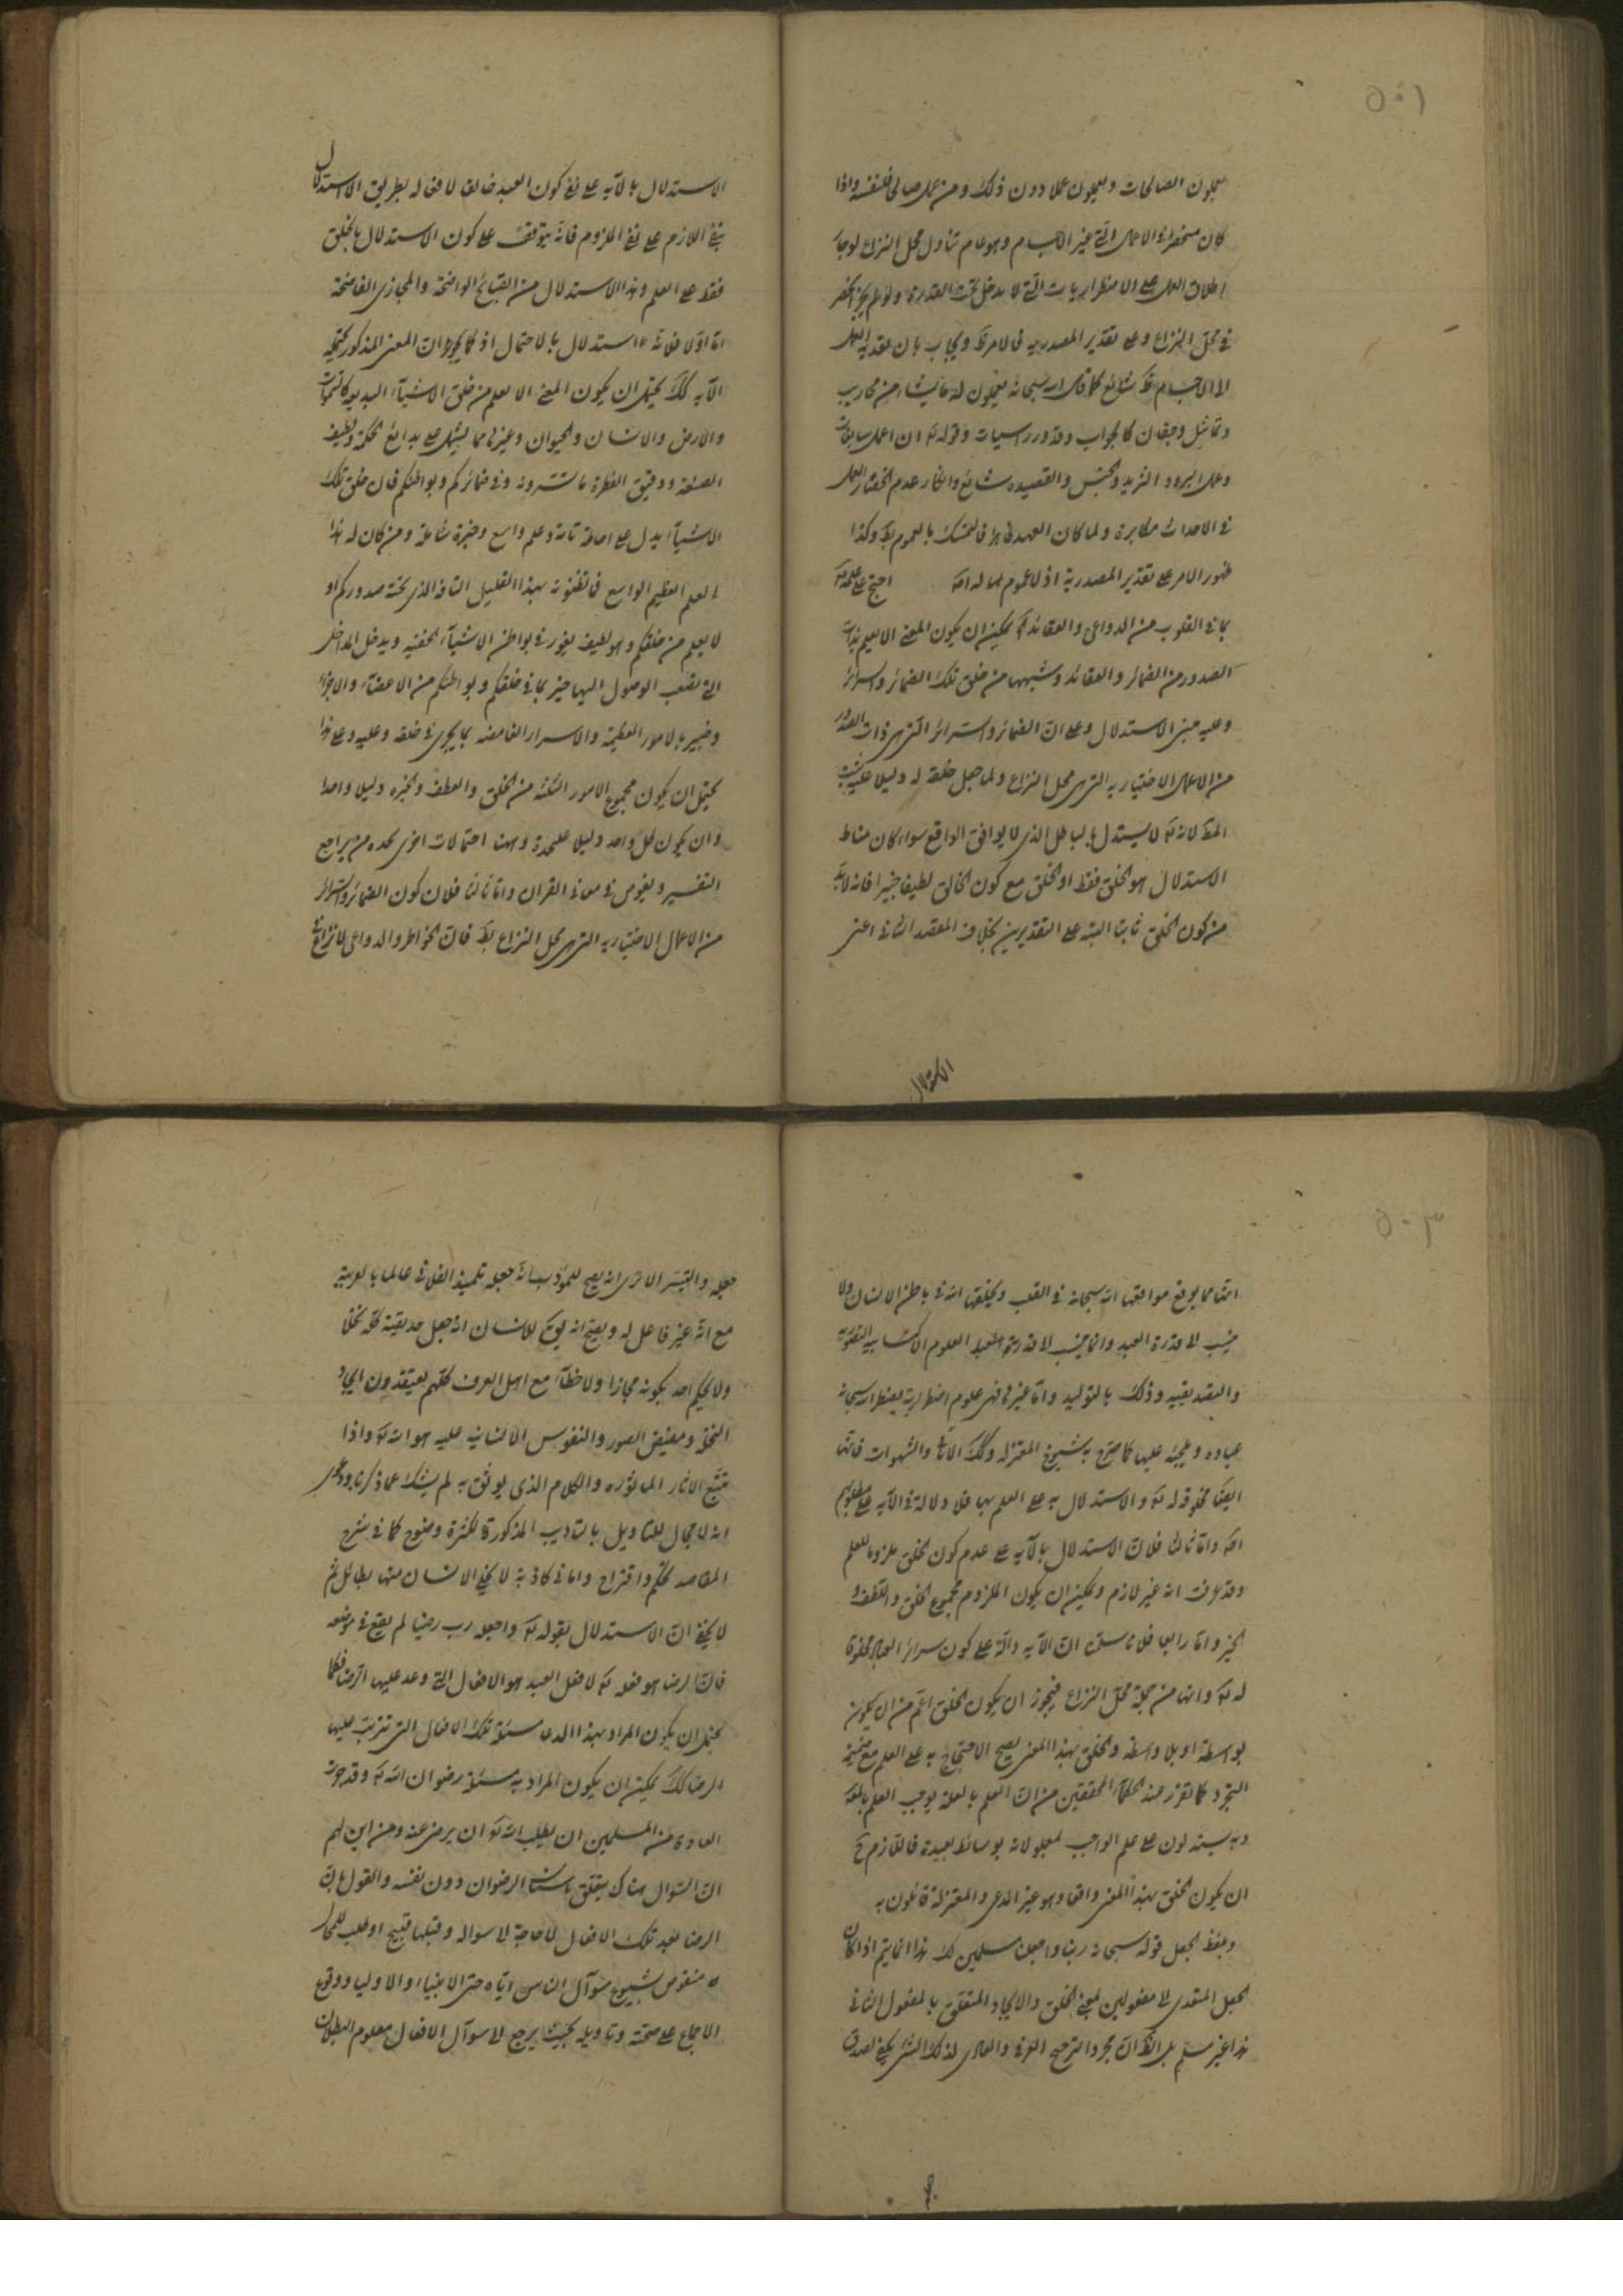 ٥٠١
يعملون الصالحات ويعملون عملا دون ذلك ومن عمل صالحا فلنفسه واذا
كان منحصرا في الاعمال التي غير الاجسام وهو عام تناول محل النزاع لوجاز
اطلاق العمل على الاضطراريات التي لا يدخل تحت القدرة ولو لم يجز انحصر
في محل النزاع وعلى تقدير المصدريه فالامر ظ ويجاب بان تعديه العمل
الى الاجسام شائع كما قال الله سبحانه يعملون له ما يشاء من محاريب
وتماثيل وجفان كالجواب وقدور راسيات وقوله تع ان اعمل سابغات
وعمل السرير والقصيده شائع وانكار عدم اختصاص العمل
في الاحداث مكابرة ولما كان العهد ظاهرا فالتمسك بالعموم وكذا
ظهور الامر على تقدير المصدرية اذ لا عموم لها له اصلا احتج على علمه تع
بما في القلوب من الدواعي والعقائد يمكن ان يكون المعنى الا يعلم بذات
الصدور من الضمائر والعقائد وشبهها من خلق تلك الضمائر والسرائر
وعليه مبنى الاستدلال وعلى ان الضمائر والسرائر التي هي ذات الصدور
من الاعمال الاختياريه التي هي محل النزاع ولما جعل خلقه له دليلا عليه ثبت
المط لانه تع لا يستدل بالباطل الذي لا يوافق الواقع سواء كان مناط
الاستدلال هو الخلق فقط او الخلق مع كون الخالق لطيفا خبيرا فانه لابد
من كون الخلق ثابتا البتة على التقديرين بخلاف المقصد الثاني اعني
الاستدلال
الاستدلال بالآيه على نفي كون العبد خالقا لافعاله بطريق الاستدلال
بنفي اللازم على نفي الملزوم فانه يتوقف على كون الاستدلال بالخلق
فقط على العلم وهذا الاستدلال من القبائح الواضحة والمخازي الفاضحة
اما اولا فلانه استدلال بالاحتمال اذ كما يجوز ان المعنى المذكور يحتمله
الآيه كذلك يحتمل ان يكون المعنى الا يعلم من خلق الاشياء البديعه كالسموات
والارض والانسان والحيوان وغيرها مما يشتمل على بدائع الحكمة ولطيف
الصنعة ودقيق الفطرة ما تسترونه وفي ضمائركم وبواطنكم فان خلق تلك
الاشياء يدل على احاطة تامة وعلم واسع وخبرة شاملة ومن كان له هذا
العلم العظيم الواسع فما تظنونه بهذا القليل التافه الذي تحته صدوركم او
لا يعلم من خلقكم وهو لطيف يغور في بواطن الاشياء الخفيه ويدخل المداخل
التي تصعب الوصول اليها خبير بما في خلقكم وبواطنكم من الاعضاء والاجزاء
وخبير بالامور العظيمة والاسرار الغامضه بما يجري في خلقه وعليه وعلى هذا
يحتمل ان يكون مجموع الامور الثلثة من الخلق واللطف والخبره دليلا واحدا
وان يكون كل واحد دليلا عليحدة وههنا احتمالات اخرى يجده من يراجع
التفسير ويغوص في معاني القران واما ثانيا فلان كون الضمائر والسرائر
من الاعمال الاختياريه التي هي محل النزاع بط فان الخواطر والدواعي لا نزاع في
٥٠٣
انها مما يوقع مواقعها الله سبحانه في القلب ويخلقها الله في باطن الانسان ولا
ينسب الى قدرة العبد وانما ينسب الى قدرة العبد العلوم الاكتسابيه التصوريه
والتصديقيه وذلك بالتوليد واما غيرها فهي علوم اضطرارية يضطر الله سبحانه
عباده ويلجئه عليها كما صرح به شيوخ المعتزله وكذلك والشهوات فانها
ايضا مخلوقه له تع والاستدلال به على العلم بها فلا دلالة في الآيه على مطلوبهم
اصلا واما ثالثا فلان الاستدلال بالآيه على عدم كون الخلق ملزوما للعلم
وقد عرفت انه غير لازم ويمكن ان يكون الملزوم مجموع الخلق واللطف و
الخبر واما رابعا فلانا سلمنا ان الآيه دالة على كون سرائر العباد مخلوقا
له تع وانها من جملة محل النزاع فيجوز ان يكون الخلق اعم من ان يكون
بواسطة او بلا واسطه والخلق بهذا المعنى يصح الاحتجاج به على العلم مع ضميمة
التجرد كما تقرر عند الحكماء المحققين من ان العلم بالعلة يوجب العلم بالمعلول
وبه يستدلون على علم الواجب لمعلولاته بوسائط بعيدة فاللازم ح
ان يكون الخلق بهذا المعنى واقعا وهو غير المدعى والمعتزلة قائلون به
وبلفظ الجعل قوله سبحانه ربنا واجعلنا مسلمين لك هذا انما يتم اذا كان
الجعل المتعدي الى مفعولين بمعنى الخلق والايجاد المتعلق بالمفعول الثاني
هذا غير مسلم بل الظ ان مجرد الترجيح العرفي والعادي لذلك الشئ يكفي لصدق
جعله والتيسر الا ترى انه يصح للمؤدب انه جعل تلميذه الفلاني عالما بالعربية
مع انه غير فاعل له ويصح انه يق للانسان انه جعل حديقته كله نخلا
ولا يحكم احد بكونه مجازا ولا خطأ مع اهل العرف كلهم يعتقدون ايجاد
النخل ومفيض الصور والنفوس الانسانيه عليه هو الله تع واذا
تتبع الاثار الماثوره والكلام الذي يوثق به لم يشك عما ذكرنا ودعوى
انه لا مجال للتاويل بالتاديب المذكورة لكثرة وضوح كما في شرح
المقاصد تحكم واقتراح واماني كاذبة لا يخفى الانسان منها بطائل ثم
لا يخفى ان الاستدلال بقوله تع واجعله رب رضيا لم يقع في موضعه
فان الرضا هو فعله تع لا فعل العبد هو الافعال التي وعد عليها الرضا فكما
يحتمل ان يكون المراد بهذا الدعا مسئلة تلك الافعال التي تترتب عليها
الرضا كذلك يمكن ان يكون المراد به مسئلة رضوان الله تع وقد جرت
العادة من المسلمين ان يطلب الله تع ان يرضى عنه ومن اين لهم
ان السؤال هناك يتعلق باسباب الرضوان دون نفسه والقول بان
الرضا بعد تلك الافعال لا حاجة الى سواله وقبلها قبيح او طلب للمحال
منقوض بشيوع سوآل الناس اياه حتى الانبياء والاوليا ووقوع
الاجماع على صحته وتاويله بحيث يرجع الى سوآل الافعال معلوم البطلان